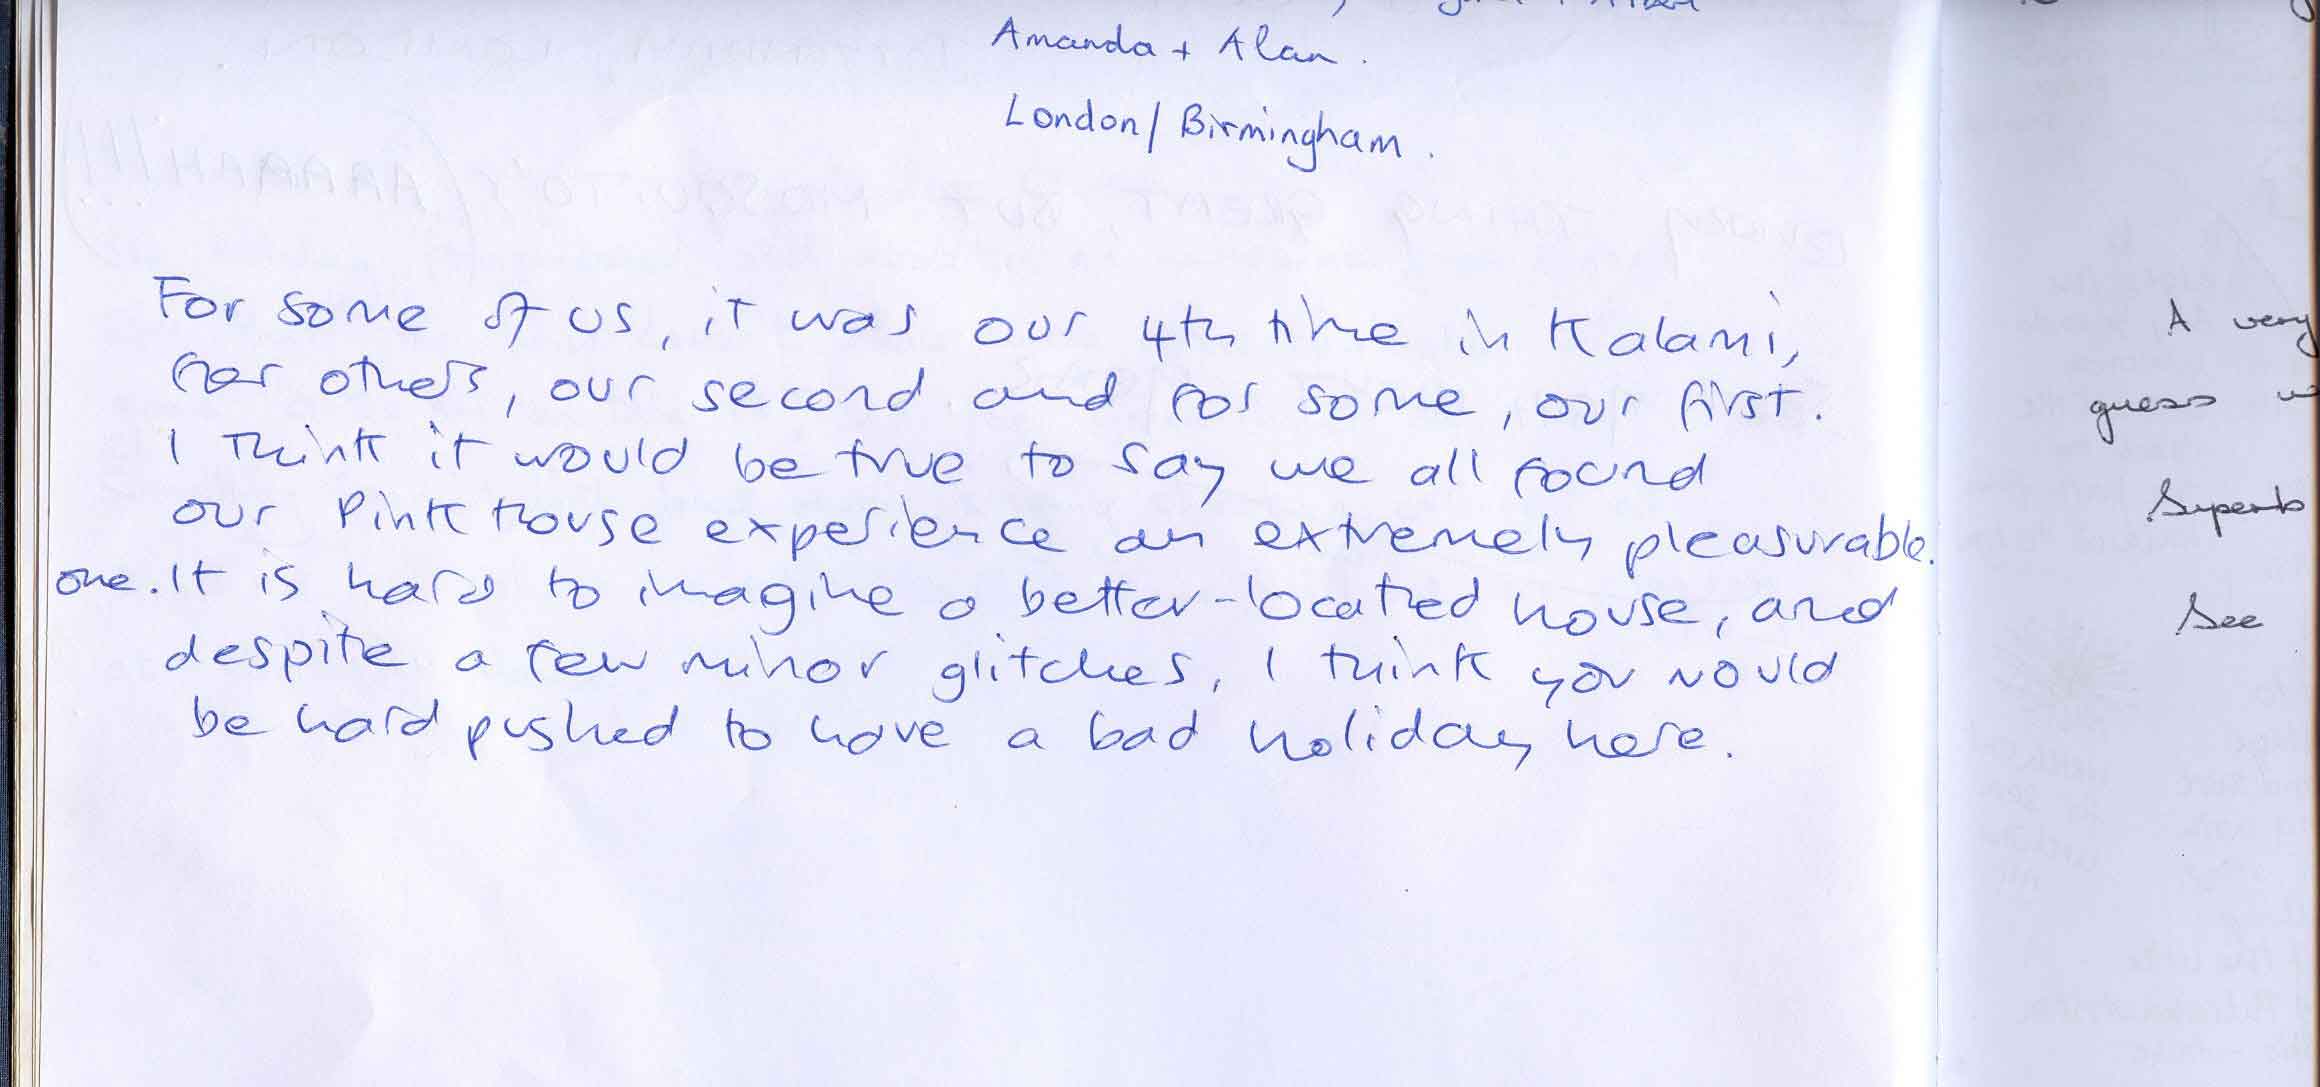 Amanda + Alan.
London/Birmingham.
For some of us, it was our 4th time in Kalami,
for others, our second and for some, our first.
I think it would be true to say we all found
our Pink House experience an extremely pleasurable.
one. It is hard to imagine a better-located house, and
despite a few minor glitches, I think you would
be hard pushed to have a bad holiday here.
A very
guess
Superb
See